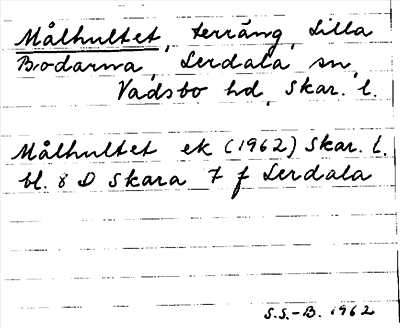 Målhultet, terräng, Lilla
Bodarna, Lerdala sn,
Vadsbo hd, Skar. l.
Målhultet ek (1962) Skar. l.
bl. 8 D Skara 7 f Lerdala
S.S.-B. 1962